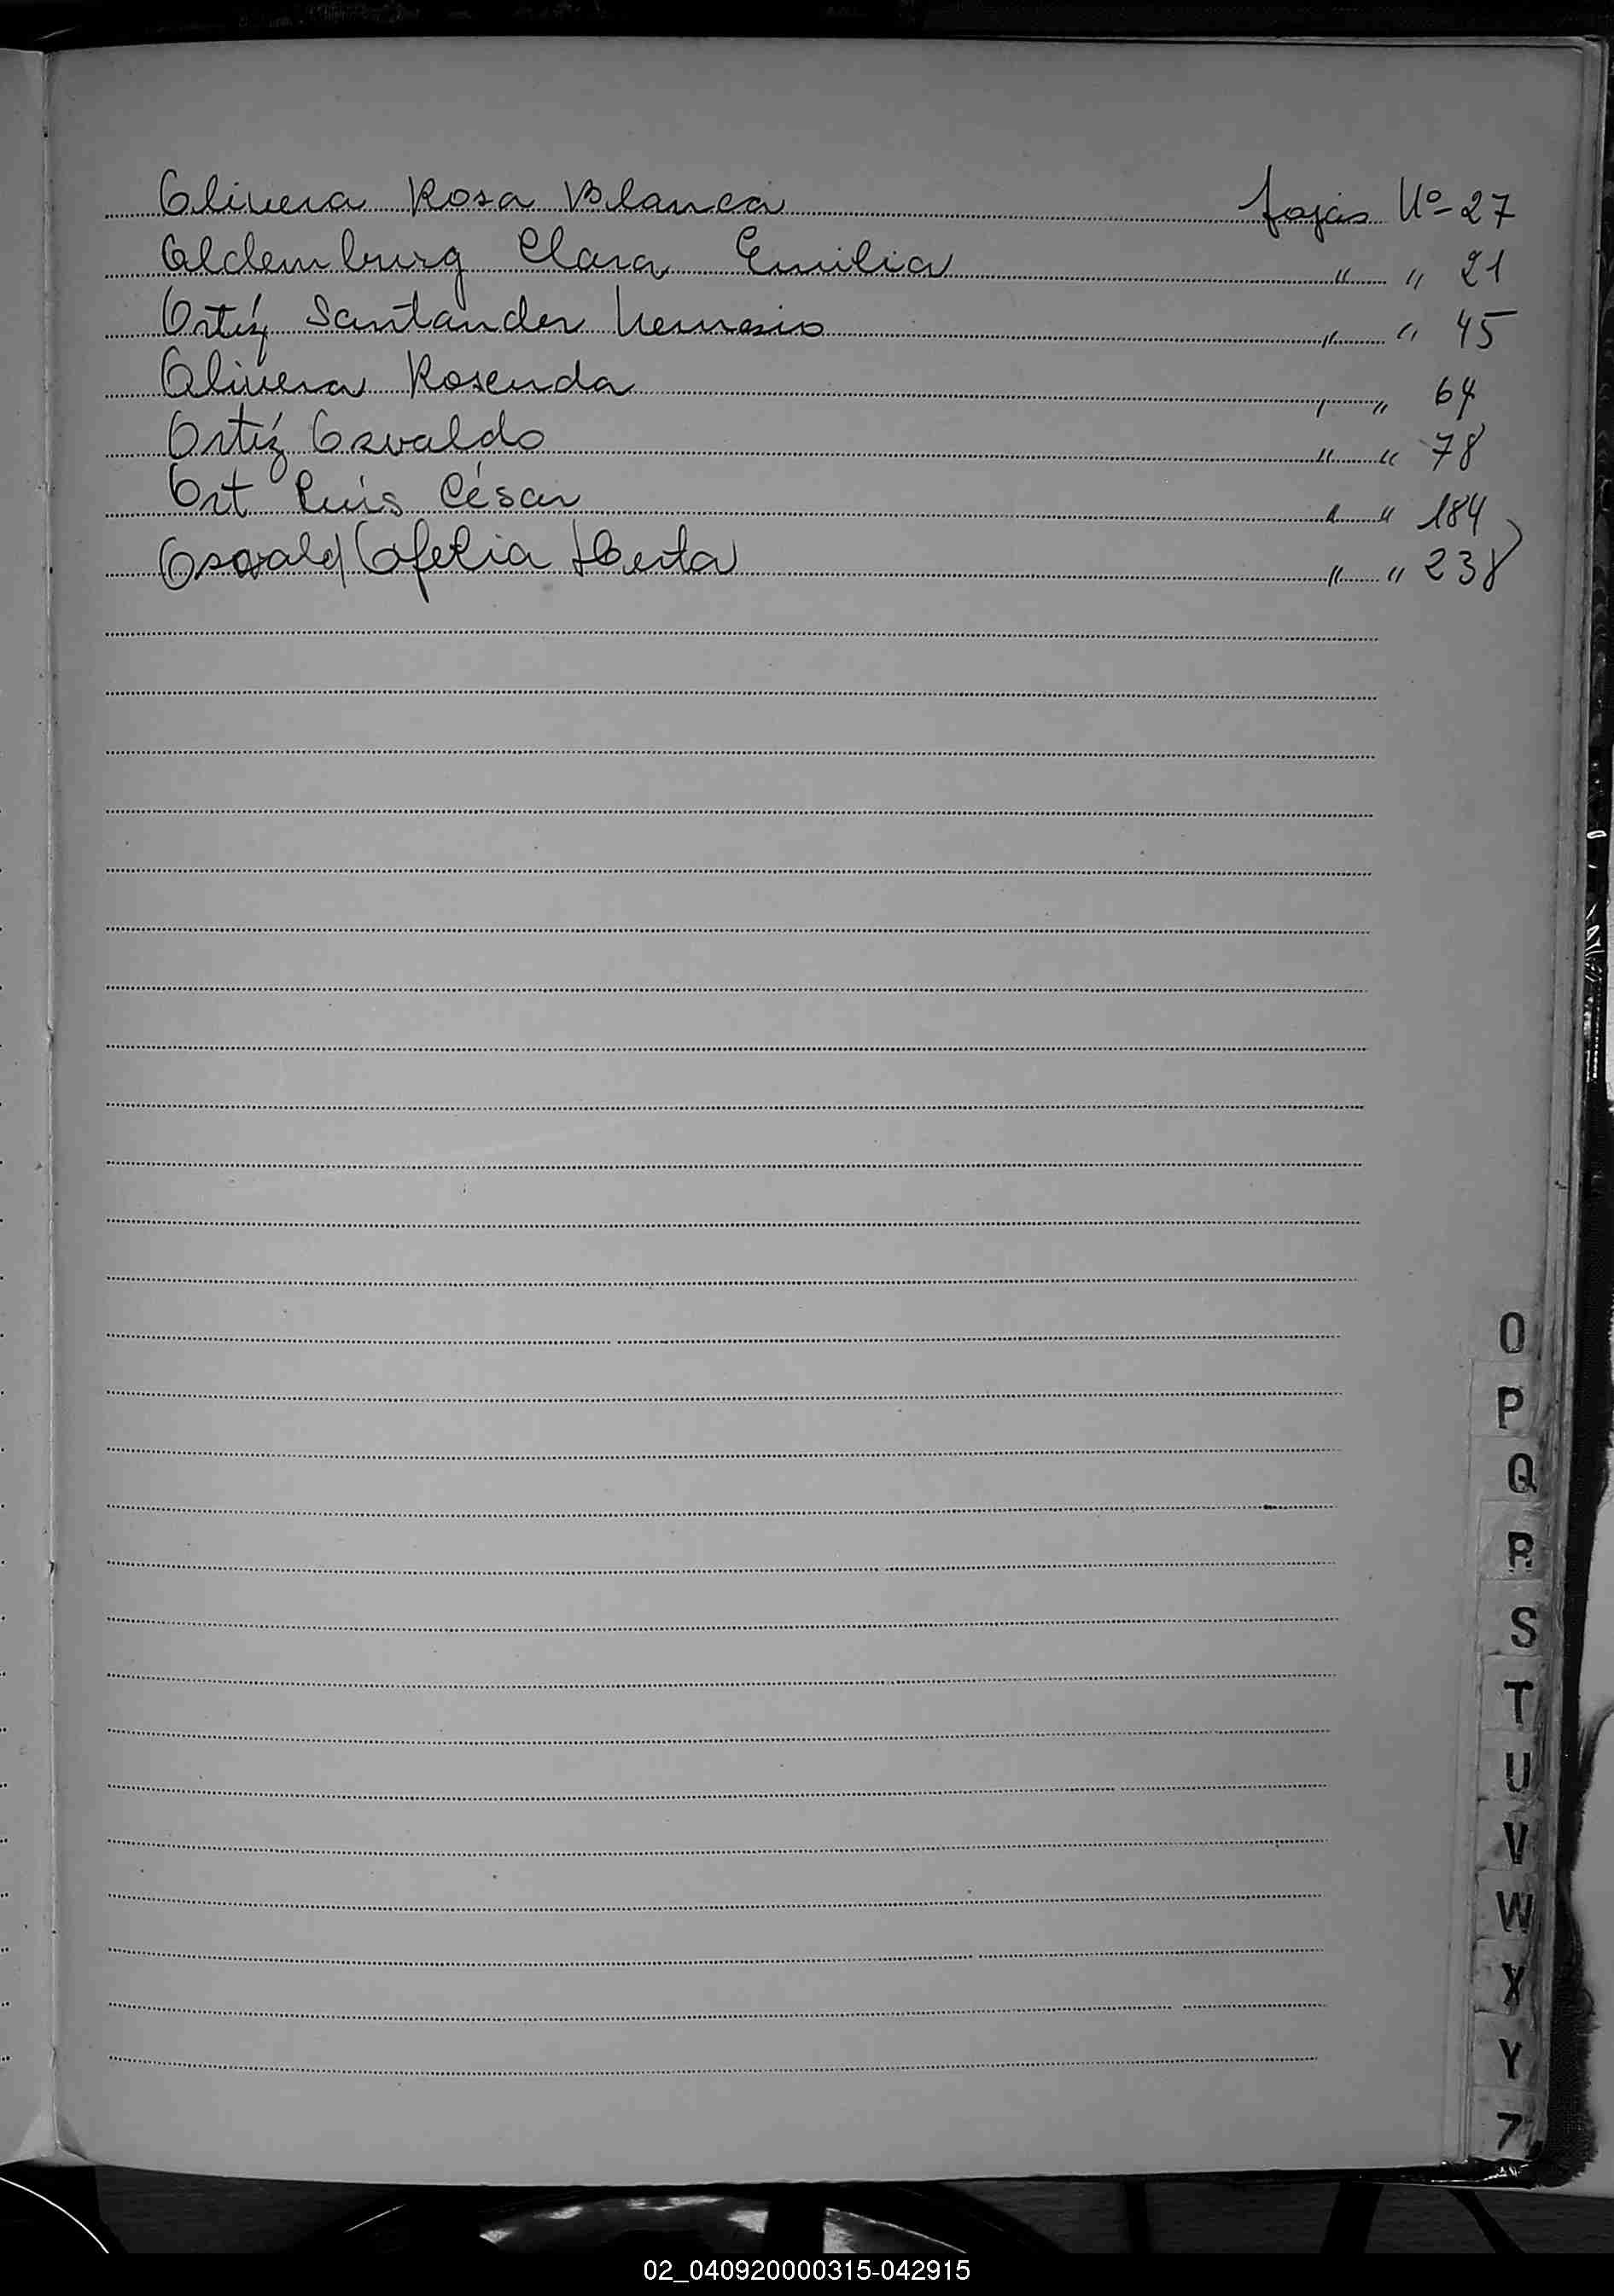 Olivera Rosa Blanca fojas Nº 27
Oldemburg Clara Emilia " " 21
Ortíz Santander Nemesio " " 45
Olivera Rosenda " " 64
Ortíz Osvaldo " " 78
Ort Luís César " " 184
Osvald Ofelia Herta " " 238
O
P
Q
R
S
T
U
V
W
X
Y
Z
02_040920000315-042915